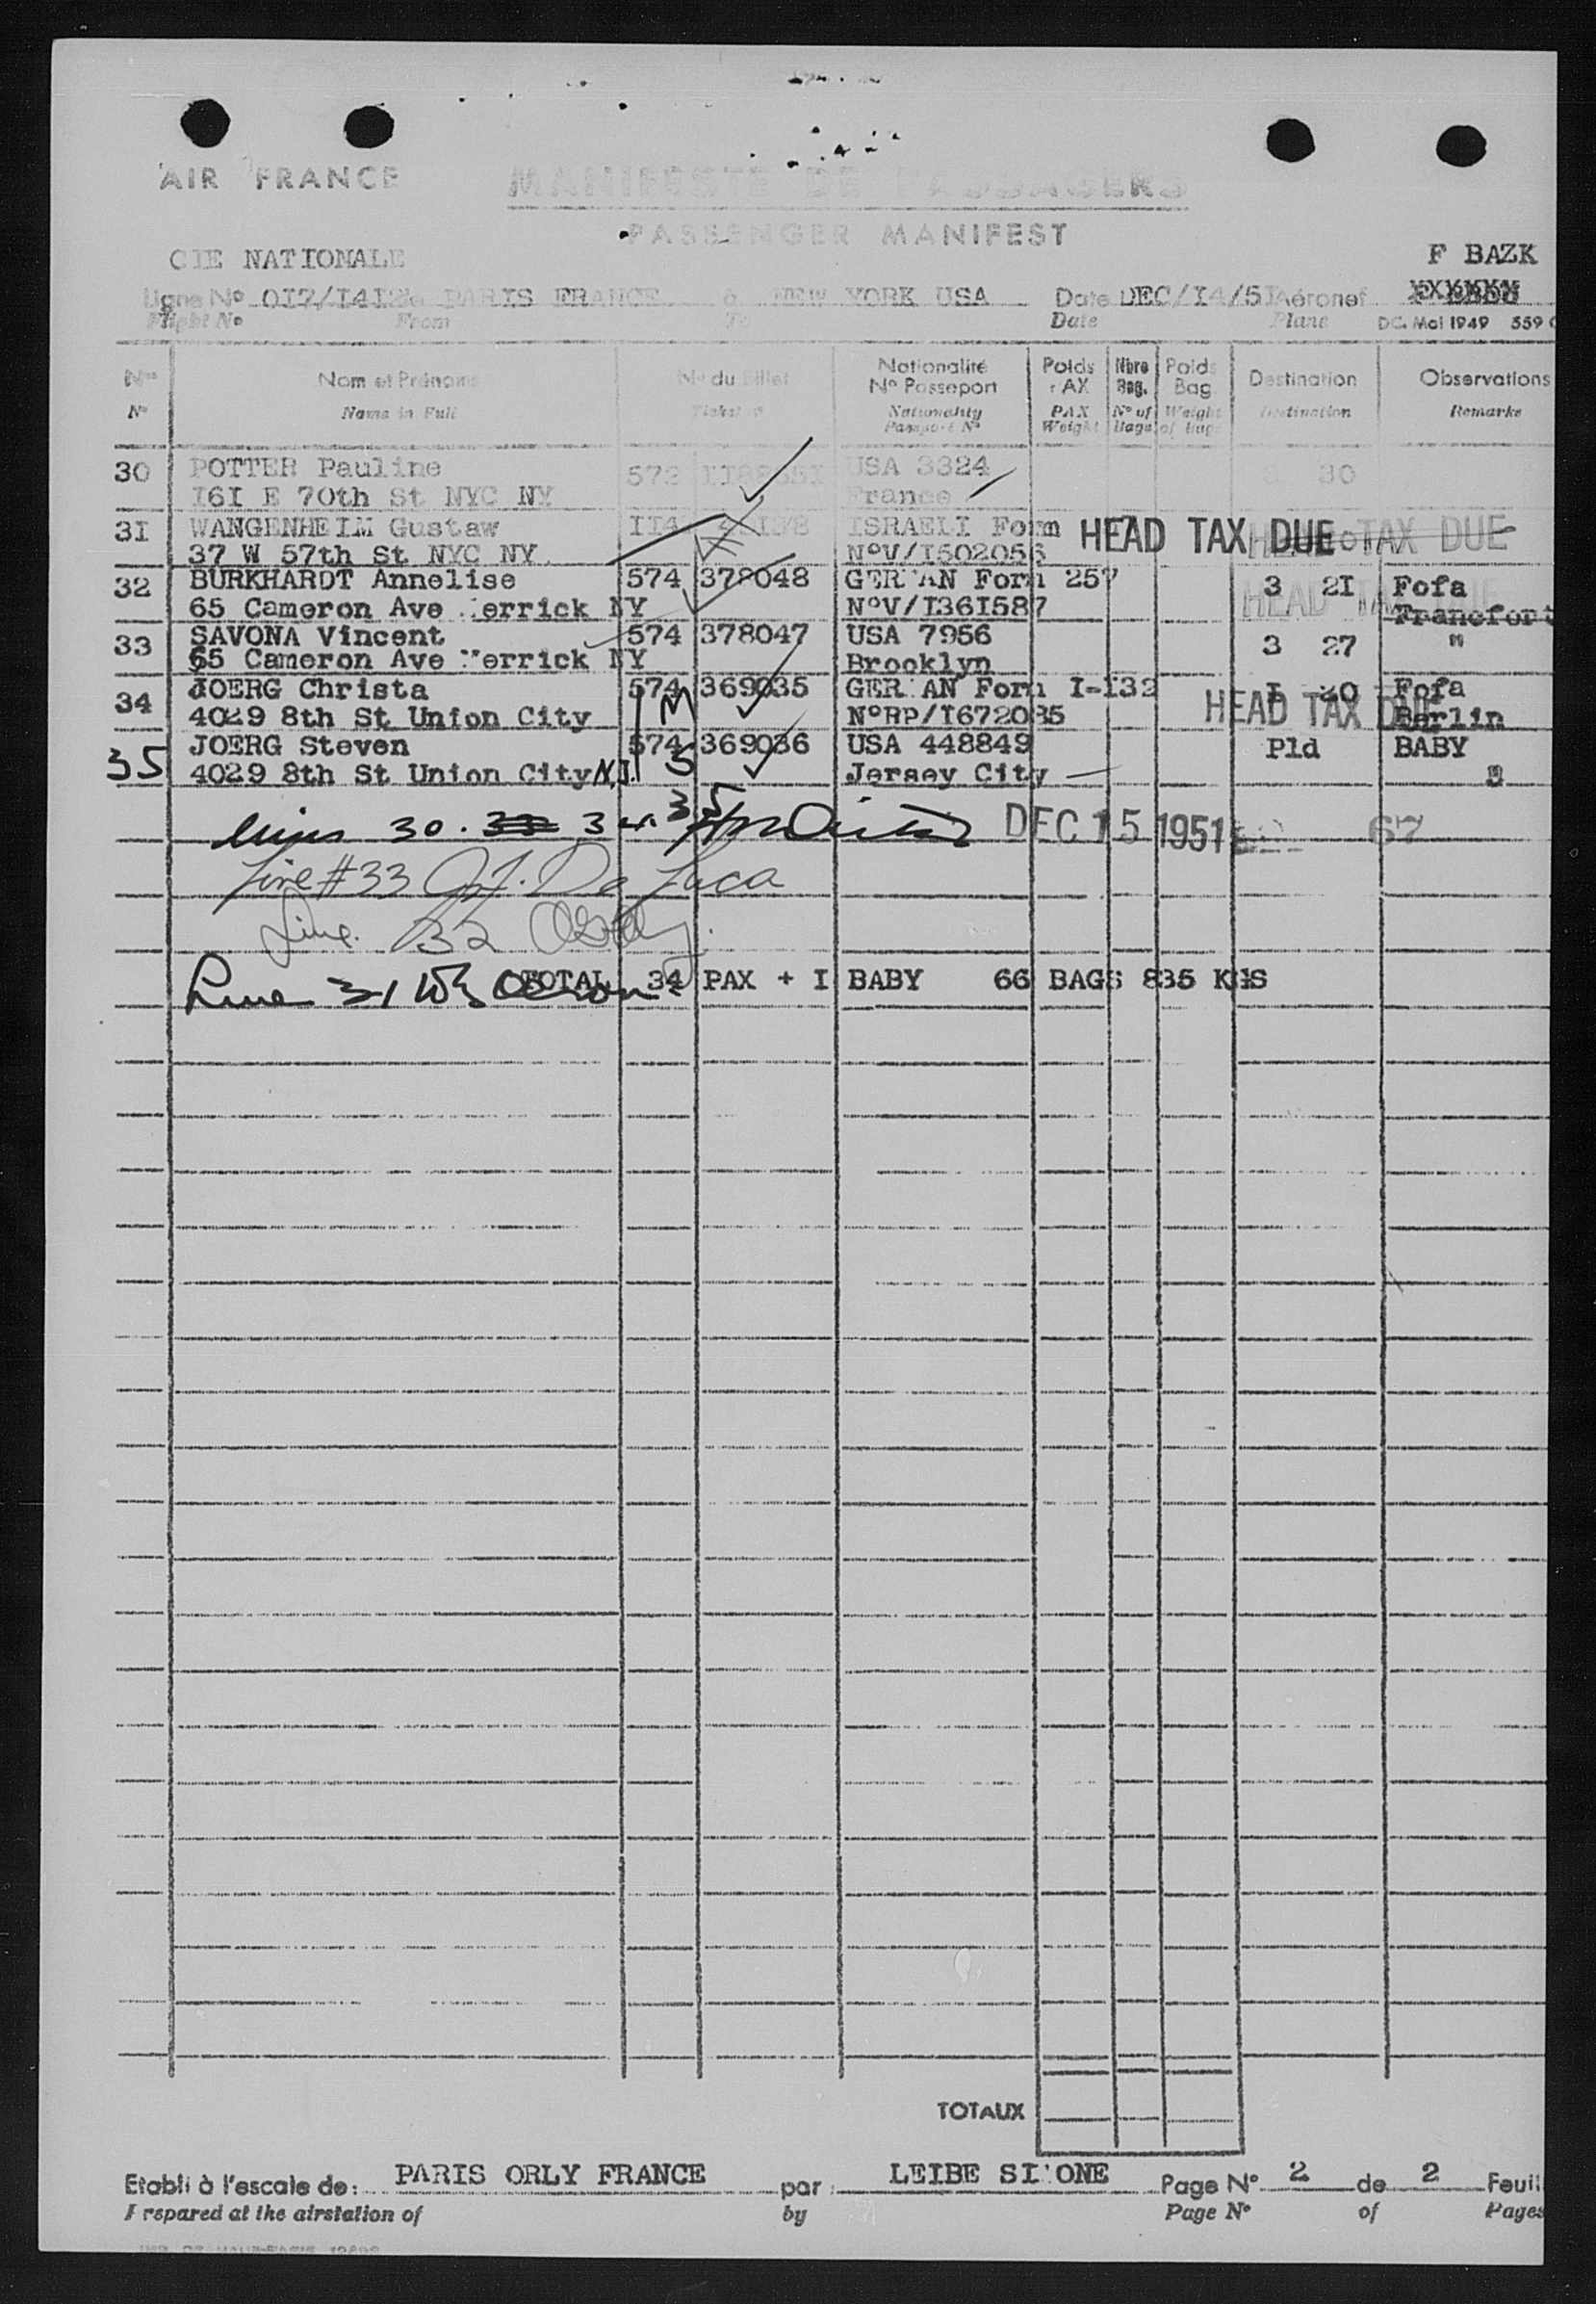 AIR FRANCE
MANIFESTE DE PASSAGERS
PASSENGER MANIFEST
CIE NATIONALE
F BAZK
Ligne Nº OI7/I412 PARIS FRANCE à NEW YORK USA Date DEC/I4/5I Aéronef
Flight Nº From To Date Plane DC. Mai 1949 559
Nos Nom et Prénoms Nº du Billet Nationalité Nº Passeport Poids PAX Nbre Bag. Poids Bag Destination Observations
Nº Name in Full Ticket nº Nationality Passport Nº PAX Weight Nº of Bags Weight of Bags Destination Remarks
30 POTTER Pauline 572 USA 3324 30
I6I E 70th St NYC NY France
3I WANGENHEIM Gustaw II4 ISRAELI Form HEAD TAX DUE HEAD TAX DUE
37 W 57th St NYC NY. NºV/I502056
32 BURKHARDT Annelise 574 378048 GERMAN Form 257 3 2I Fofa
65 Cameron Ave Merrick NY NºV/I36I587 HEAD TAX DUE Francfort
33 SAVONA Vincent 574 378047 USA 7956 3 27 "
65 Cameron Ave Merrick NY Brooklyn
34 JOERG Christa 574 369035 GERMAN Form I-I32 I 20 Fofa
4029 8th St Union City M NºRP/I672085 HEAD TAX DUE Berlin
35 JOERG Steven 574 369036 USA 448849 Pld BABY
4029 8th St Union City N.J. S Jersey City "
Lines 30. 34. 35 DEC 15 1951 67
Line #33 J. De Luca
Line 32
Line 31
TOTAL 34 PAX + I BABY 66 BAGS 835 KGS
TOTAUX
Etabli à l'escale de: PARIS ORLY FRANCE par: LEIBE SIMONE Page Nº 2 de 2 Feuil
Prepared at the airstation of by Page Nº of Pages